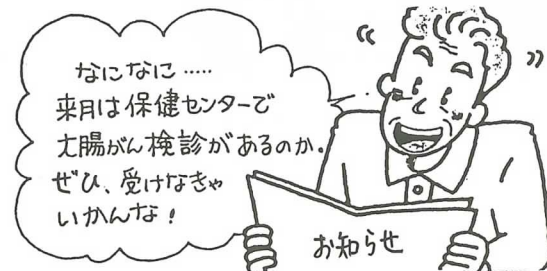 なになに……
来月は保健センターで
大腸がん検診があるのか。
ぜひ、受けなきゃ
いかんな！
お知らせ